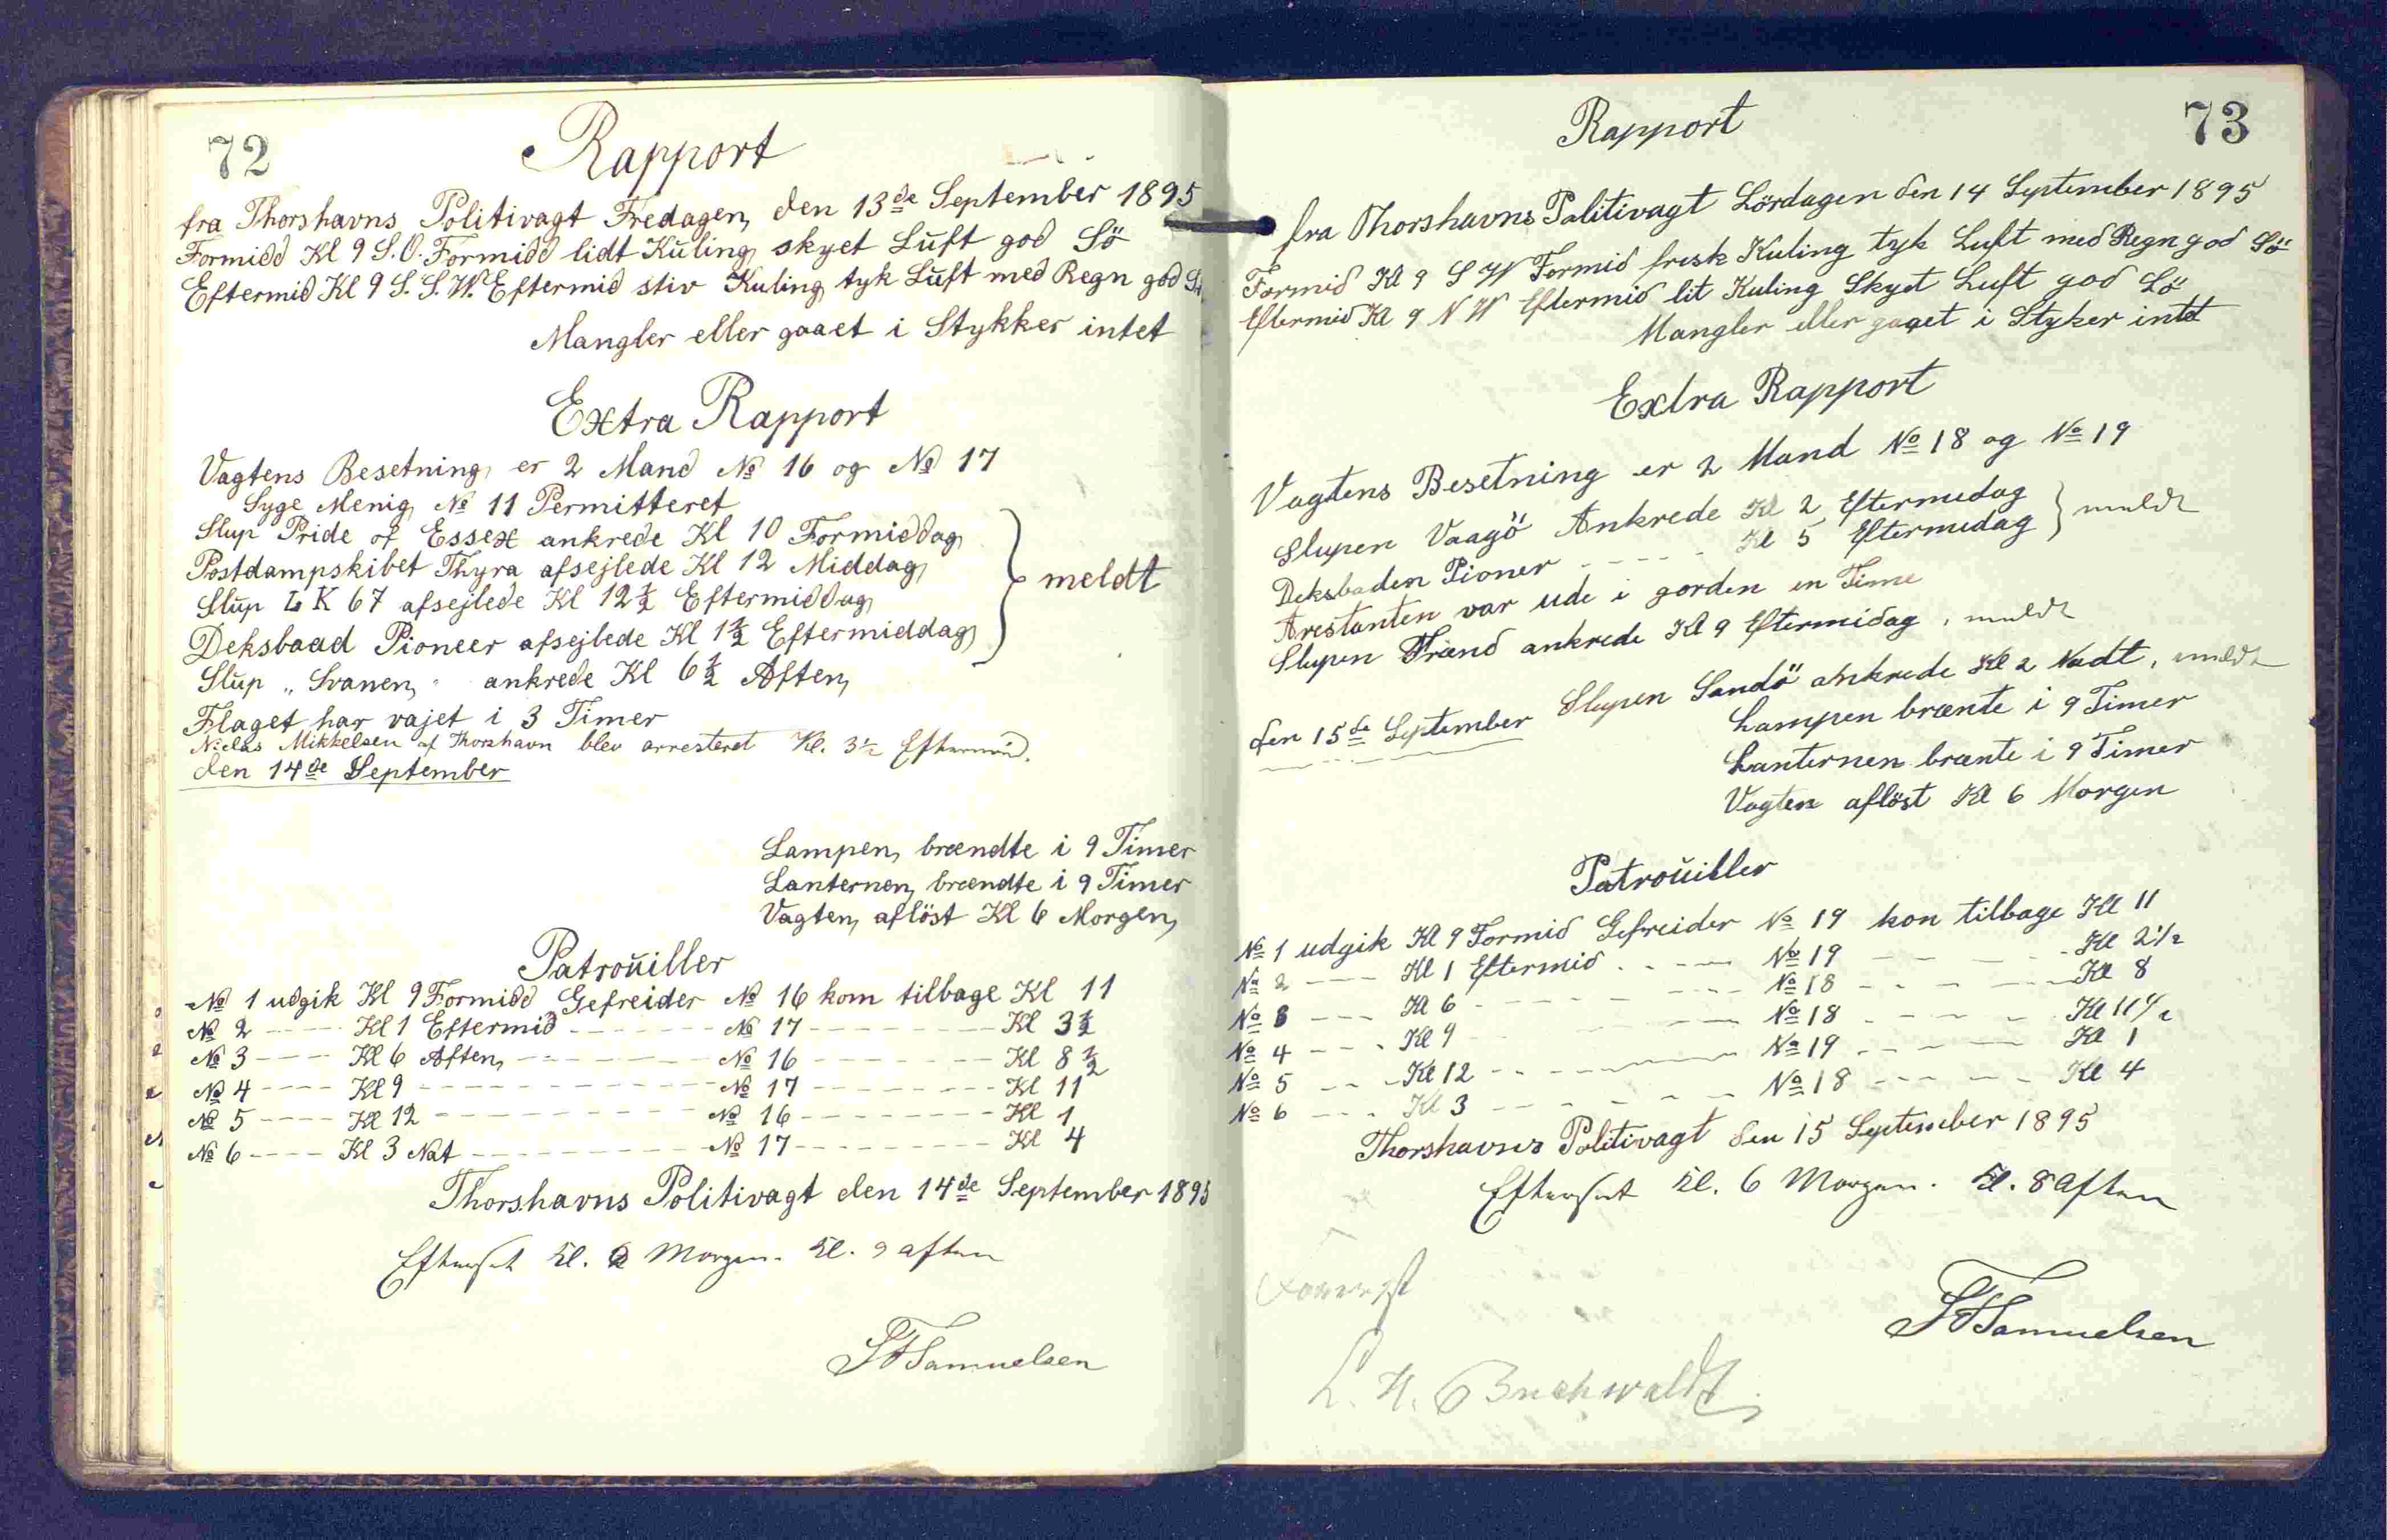 72
Rapport
fra Thorshavns Politivagt Fredagen, den 13de September 1895
Formidd Kl 9 S.O. Formidd lidt Kuling, skyet Luft god Sö
Eftermid Kl 9 S.S.W. Eftermid stiv Kuling tyk Luft med Regn god Sö
Mangler eller gaaet i Stykker intet
Extra Rapport
Vagtens Besetning, er 2 Mand No 16 og No 17
Syge Menig No 11 Permitteret
Slup Pride of Essex ankrede Kl 10 Formiddag
Postdampskibet Thyra afsejlede Kl 12 Middag
Slup LK 67 afsejlede Kl 12½ Eftermiddag
Deksbaad Pioneer afsejlede Kl 1½ Eftermiddag
meldt
Slup „Svanen" ankrede Kl 6½ Aften,
Flaget har vajet i 3 Timer
Niclas Mikkelsen af Thorshavn blev arresteret Kl. 3½ Eftermid.
den 14de September
Lampen, brændte i 9 Timer
Lanternen, brændte i 9 Timer
Vagten, aflöst Kl 6 Morgen,
Patrouiller
No 1 udgik Kl 9 Formidd Gefreider No 16 kom tilbage Kl 11
No 2 ---- Kl 1 Eftermid ---- No 17 ---- Kl 3½
No 3 ---- Kl 6 Aften, ---- No 16 ---- Kl 8½
No 4 ---- Kl 9 ---- No 17 ---- Kl 11
No 5 ---- Kl 12 ---- No 16 ---- Kl 1
No 6 ---- Kl 3 Nat ---- No 17 ---- Kl 4
Thorshavns Politivagt den 14de September 1895
Efterset Kl. Morgen. Kl. 9 aften
Samuelsen
73
Rapport
fra Thorshavns Politivagt Lördagen den 14 September 1895
Formid Kl 9 S W Formid frisk Kuling tyk Luft med Regn god Sö
Eftermid Kl 9 N W Eftermid lit Kuling Skyet Luft god Sö
Mangler eller gaaet i Styker intet
Extra Rapport
Vagtens Besetning er 2 Mand No 18 og No 19
Slupen Vaagö Ankrede Kl 2 Eftermedag
Deksbaden Pioner ---- Kl 5 Eftermedag
meldt
Arestanten var ude i gorden en Time
Slupen Trænd ankrede Kl 9 Eftermidag, meldt
den 15de September Slupen Sandö ankrede Kl 2 Nadt, meldt
Lampen brænte i 9 Timer
Lanternen brænte i 9 Timer
Vagten aflöst Kl 6 Morgen
Patrouiller
No 1 udgik Kl 9 Formid Gefreider No 19 kon tilbage Kl 11
No 2 ---- Kl 1 Eftermid ---- No 19 ---- Kl 2½
No 3 ---- Kl 6 ---- No 18 ---- Kl 8
No 4 ---- Kl 9 ---- No 18 ---- Kl 11½
No 5 ---- Kl 12 ---- No 19 ---- Kl 1
No 6 ---- Kl 3 ---- No 18 ---- Kl 4
Thorshavns Politivagt den 15 September 1895
Efterset Kl. 6 Morgen. Kl. 8 Aften
Samuelsen
L. H. Buchwaldt